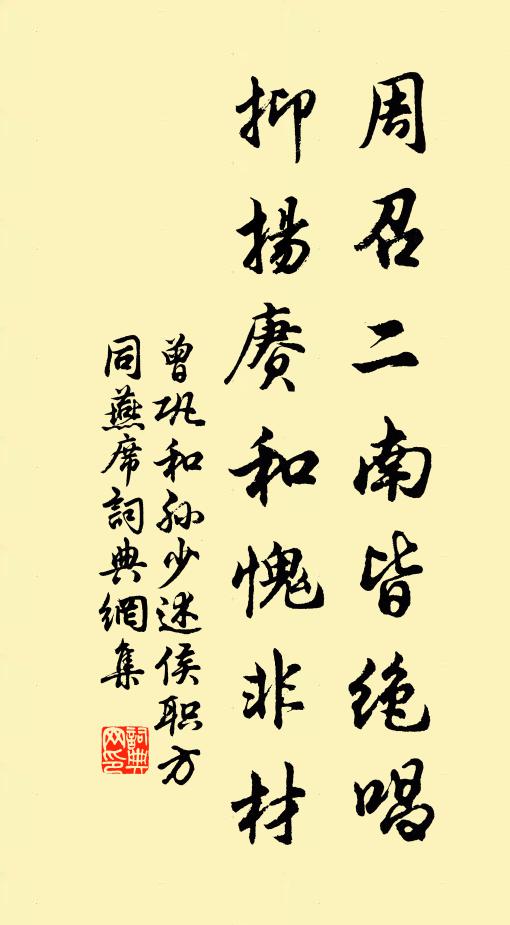 周召二南皆绝唱
抑揚赓和愧非材
曾巩和孙少述侯职方
同燕席詞典網集
詞典
网印